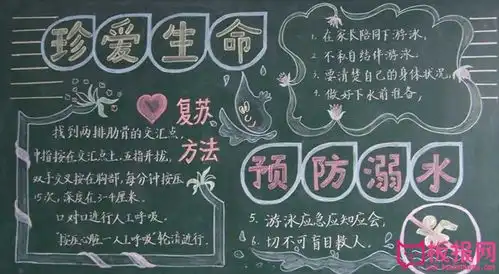 珍爱生命
1. 在家长陪同下游泳,
2. 不私自结伴游泳.
3. 要清楚自己的身体状况,
4. 做好下水前准备,
复苏
方法
找到两排肋骨的交汇点,
中指按在交汇点上,五指并拢,
双手交叉按在胸部,每分钟按压
15次,深度在3-4厘米.
口对口进行人工呼吸.
"按压心脏一人工呼吸"轮流进行.
预防溺水
5. 游泳应急应知应会,
6. 切不可盲目救人.
板报网